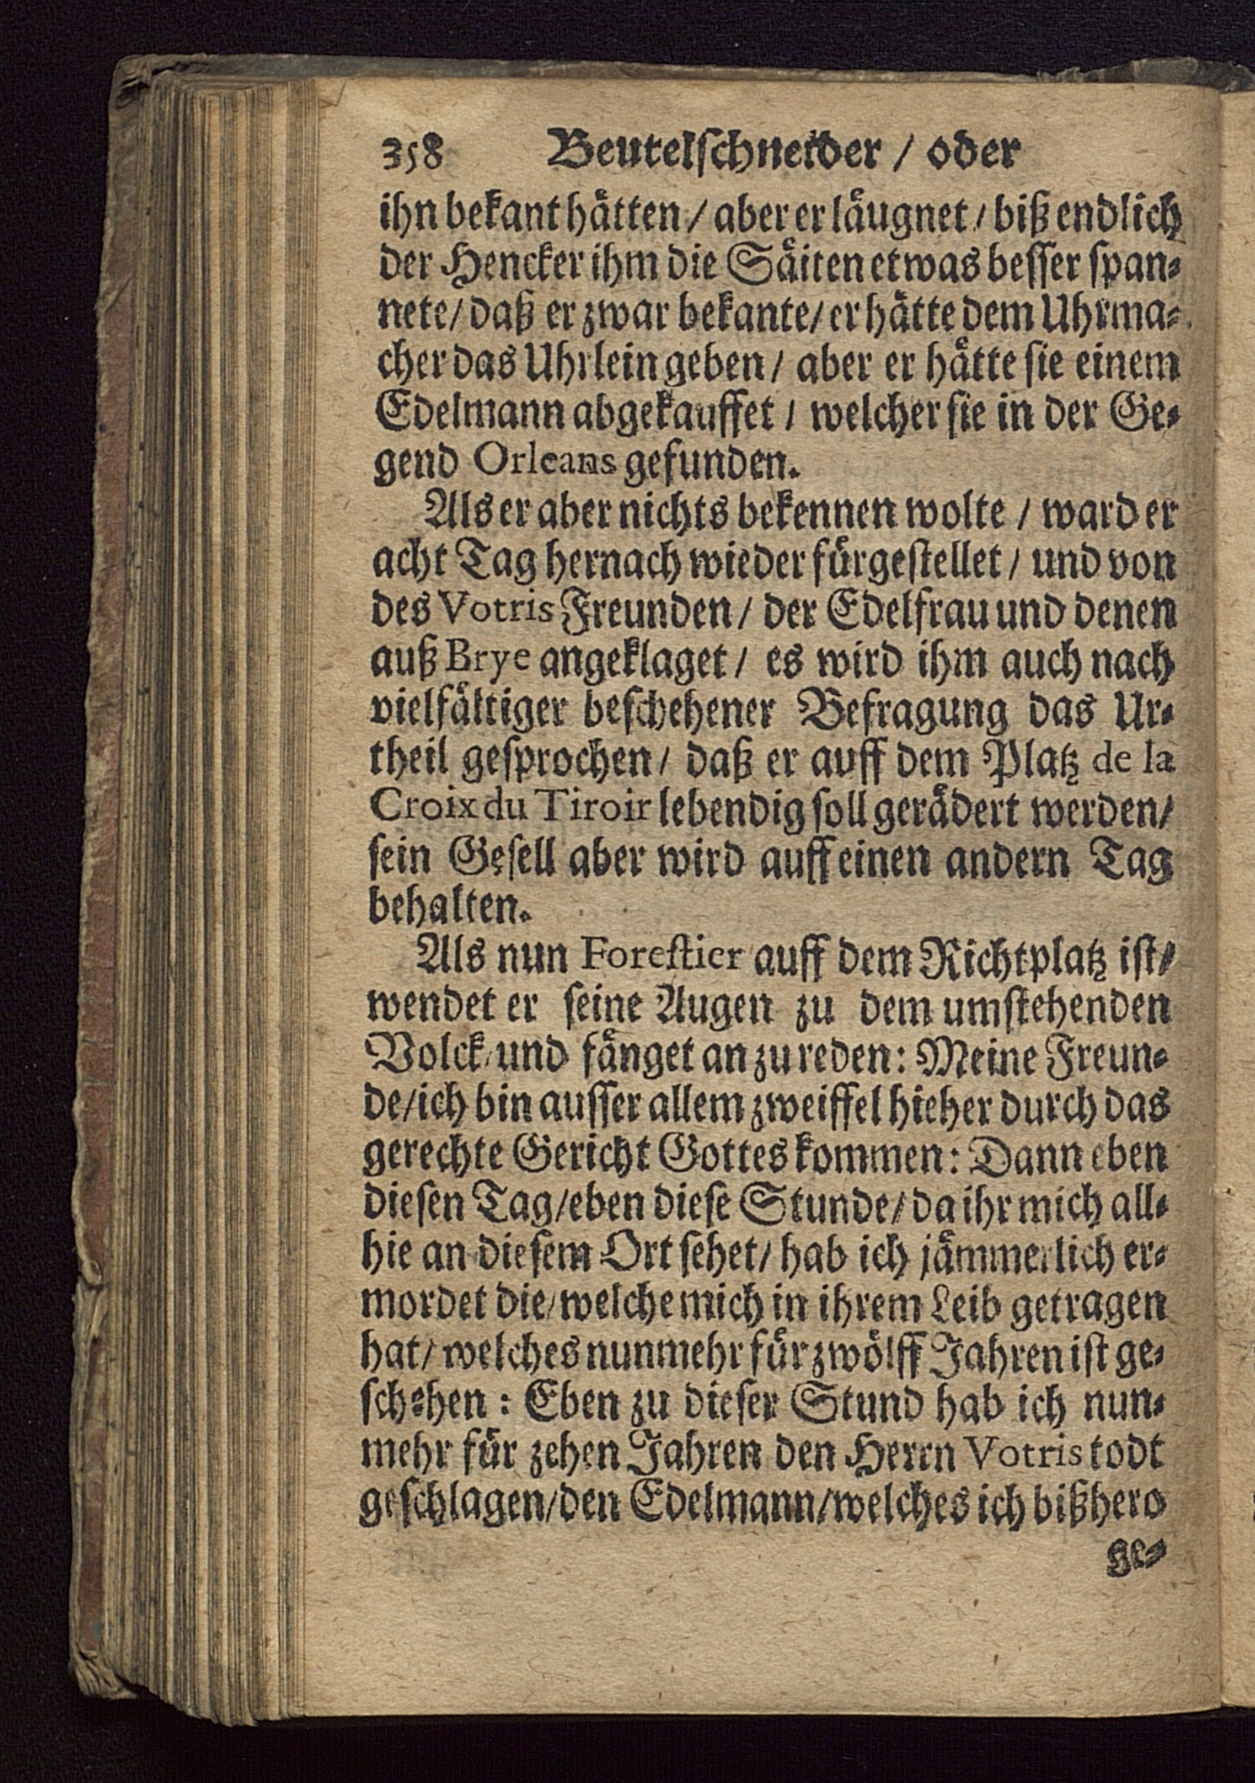 358 Beutelschneider / oder
ihn bekant hätten / aber er läugnet / biß endlich
der Hencker ihm die Säiten etwas besser span-
nete / daß er zwar bekante / er hätte dem Uhrma-
cher das Uhrlein geben / aber er hätte sie einem
Edelmann abgekauffet / welcher sie in der Ge-
gend Orleans gefunden.
Als er aber nichts bekennen wolte / ward er
acht Tag hernach wieder fürgestellet / und von
des Votris Freunden / der Edelfrau und denen
auß Brye angeklaget / es wird ihm auch nach
vielfältiger beschehener Befragung das Ur-
theil gesprochen / daß er auff dem Platz de la
Croix du Tiroir lebendig soll gerädert werden /
sein Gesell aber wird auff einen andern Tag
behalten.
Als nun Forestier auff dem Richtplatz ist /
wendet er seine Augen zu dem umstehenden
Volck / und fänget an zu reden: Meine Freun-
de / ich bin ausser allem zweiffel hieher durch das
gerechte Gericht Gottes kommen: Dann eben
diesen Tag / eben diese Stunde / da ihr mich all-
hie an diesem Ort sehet / hab ich jämmerlich er-
mordet die / welche mich in ihrem Leib getragen
hat / welches nunmehr für zwölff Jahren ist ge-
schehen: Eben zu dieser Stund hab ich nun-
mehr für zehen Jahren den Herrn Votris todt
geschlagen / den Edelmann / welches ich bißhero
ge-